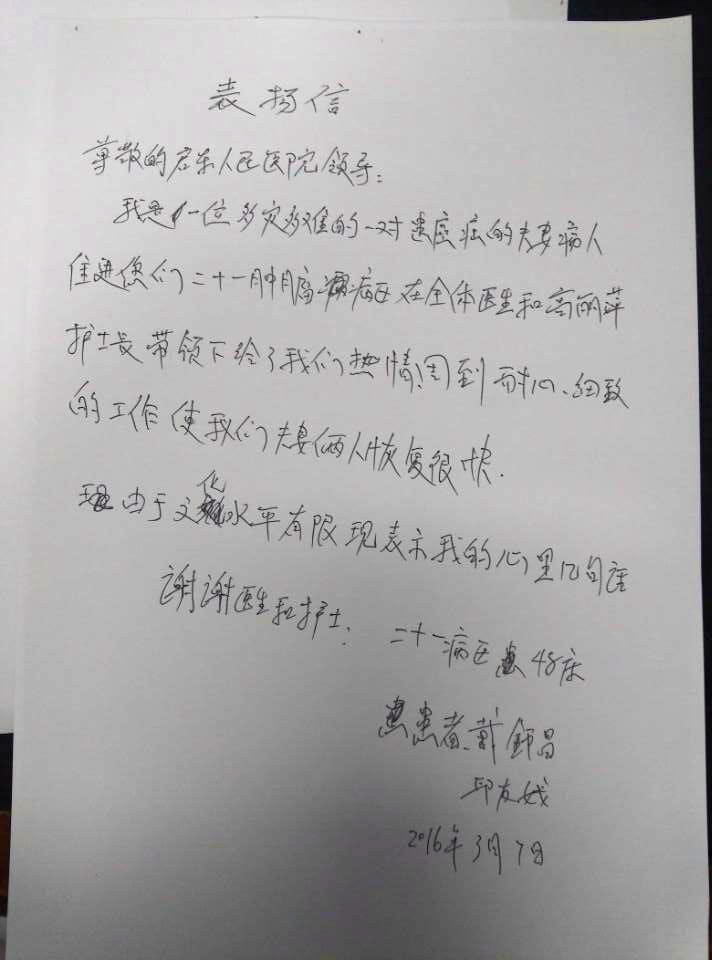 表扬信
尊敬的启东人民医院领导：
我是一位多灾多难的一对患癌症的夫妻病人
住进您们二十一月中月肿瘤病区在全体医生和高丽萍
护士长带领下给了我们热情、周到、耐心、细致
的工作使我们夫妻俩人恢复很快.
由于文化水平有限现表示我的心里几句话
谢谢医生和护士：
二十一病区 48床
患者、戴 昌
邱友娥
2016年3月7日